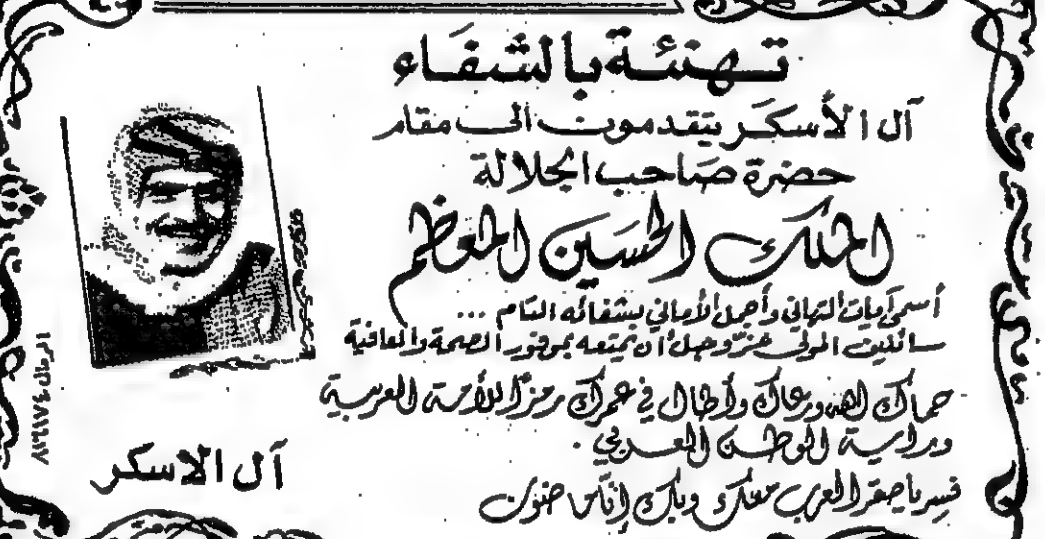 تهنئة بالشفاء
آل الأسكر يتقدمون الى مقام
حضرة صاحب الجلالة
الملك الحسين المعظم
أسمى آيات التهاني وأجمل الأماني بشفائه التام ...
سائلين المولى عز وجل أن يمتعه بموفور الصحة والعافية
حماك الله ورعاك وأطال في عمرك رمزاً للأمة العربية
وراية الوطن العربي .
فسر يا صقر العرب معك وبك إنا ماضون
آل الاسكر